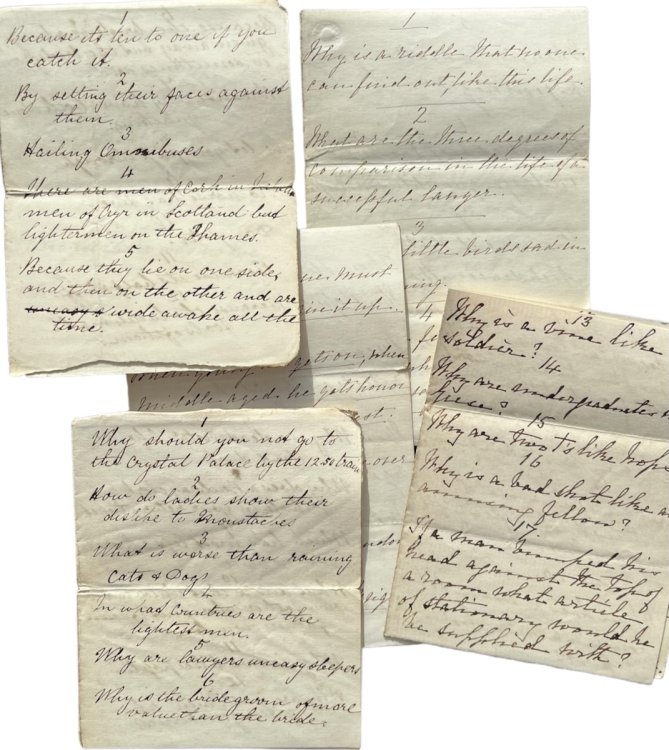 1
Because its ten to one if you
catch it.
2
By setting their faces against
them.
3
Hailing Omnibuses
4
There are men of Cork in
men of Ayr in Scotland but
lightermen on the Thames.
5
Because they lie on one side,
and then on the other and are
wide awake all the
time.
1
Why is a riddle that no one
can find out like this life.
2
What are the three degrees of
comparison in the life of a
successful lawyer.
3
little birds sad in
4
must
it up
get on, when
middle-aged he gets honor
over
1
Why should you not go to
the Crystal Palace by the 12.50 train
2
How do ladies show their
dislike to Moustaches
3
What is worse than raining
Cats & Dogs
4
In what Countries are the
lightest men.
5
Why are lawyers uneasy sleepers
6
Why is the bridegroom of more
value than the bride.
13
Why is a vine like
soldier?
14
Why are undergraduates
15
Why are two Ts like
16
Why is a bad shot like an
amusing fellow?
17
If a man bumped his
head against the top of
a room what article
of stationary would he
be supplied with?